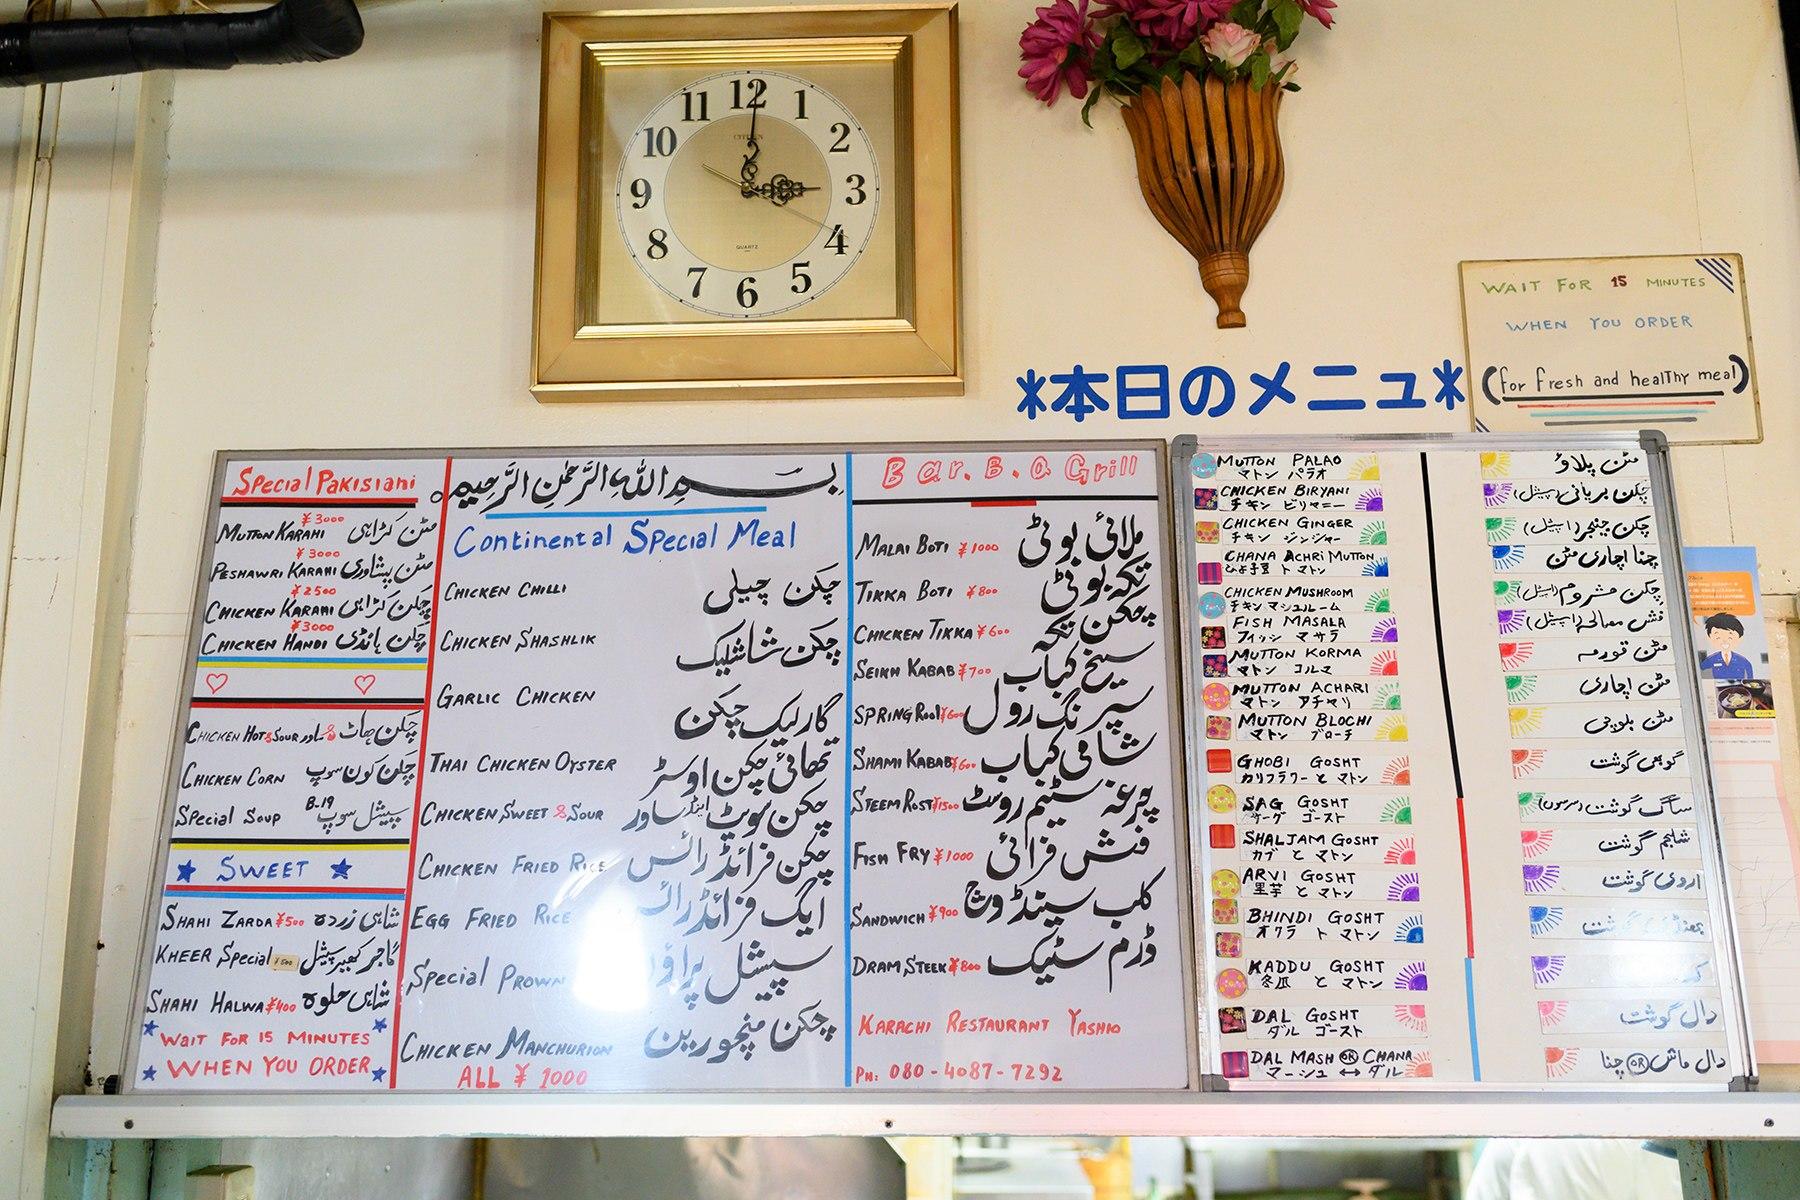 12
1
2
3
4
5
6
7
8
9
10
11
CITIZEN
QUARTZ
WAIT FOR 15 MINUTES
WHEN YOU ORDER
(for fresh and healThy meal)
*本日のメニュー*
Special Pakisiani
¥3000
MUTTON KARAHI مٹن کڑاہی
¥3000
PESHAWRI KARAHI مٹن پشاوری
¥2500
CHICKEN KARAHI چکن کڑاہی
¥3000
CHICKEN HANDI چکن ہانڈی
CHICKEN HOT & SOUR چکن ہاٹ & ساور
CHICKEN CORN چکن کون سوپ
B-19
SPECIAL SOUP سپیشل سوپ
★ SWEET ★
SHAHI ZARDA ¥500 شاہی زردہ
KHEER Special ¥500 گاجر کھیر سپیشل
SHAHI HALWA ¥400 شاہی حلوہ
WaiT FOR 15 MINUTES
WHEN YOU ORDER
بسم اللہ الرَّحمٰنِ الرَّحِیم
Continental Special Meal
CHICKEN CHILLI چکن چیلی
CHICKEN SHASHLIK چکن شاشلیک
GARLIC CHICKEN گارلیک چکن
THAI CHICKEN OYSTER تھائی چکن اوسٹر
CHICKEN SWEET & SOUR چکن سویٹ اینڈ ساور
CHICKEN FRIED RICE چکن فرائڈ رائس
EGG FRIED RICE ایگ فرائڈ رائس
Special PROWN سپیشل پراؤن
CHICKEN MANCHURION چکن منچورین
ALL ¥ 1000
Bar. B. Q Grill
MALAI BOTI ¥1000 ملائی بوٹی
TIKKA BOTI ¥800 تکہ بوٹی
CHICKEN TIKKA ¥600 چکن تکہ
SEIKH KABAB ¥700 سیخ کباب
SPRING Rool ¥600 سپرنگ رول
SHAMI KABAB ¥600 شامی کباب
STEEM ROST ¥1500 چرغہ سٹیم روسٹ
FISH FRY ¥1000 فش فرائی
SANDWICH ¥900 کلب سینڈوچ
DRAM STEEK ¥800 ڈرم سٹیک
KARACHI RESTAURANT YASHIO
PH: 080-4087-7292
MUTTON PALAO مٹن پلاؤ
マトン パラオ
CHICKEN BIRYANI چکن بریانی (سپیشل)
チキン ビリヤニー
CHICKEN GINGER چکن جنجر (سپیشل)
チキン ジンジャー
CHANA ACHRI MUTTON چنا اچاری مٹن
ひよ子豆 トマトン
CHICKEN MUSHROOM چکن مشروم (سپیشل)
チキン マシュルーム
FISH MASALA فش مصالحہ (سپیشل)
フィッシ マサラ
MUTTON KORMA مٹن قورمہ
マトン コルマ
MUTTON ACHARI مٹن اچاری
マトン アチャリ
MUTTON BLOCHI مٹن بلوچی
マトン ブローチ
GHOBI GOSHT گوبھی گوشت
カリフラワー と マトン
SAG GOSHT ساگ گوشت (سرسوں)
サーグ ゴースト
SHALJAM GOSHT شلجم گوشت
カブ と マトン
ARVI GOSHT اروی گوشت
里芋 と マトン
BHINDI GOSHT بھنڈی گوشت
オクラ ト マトン
KADDU GOSHT
冬瓜 と マトン
DAL GOSHT دال گوشت
ダル ゴースト
DAL MASH OR CHANA دال ماش OR چنا
マーシュ ↔ ダル